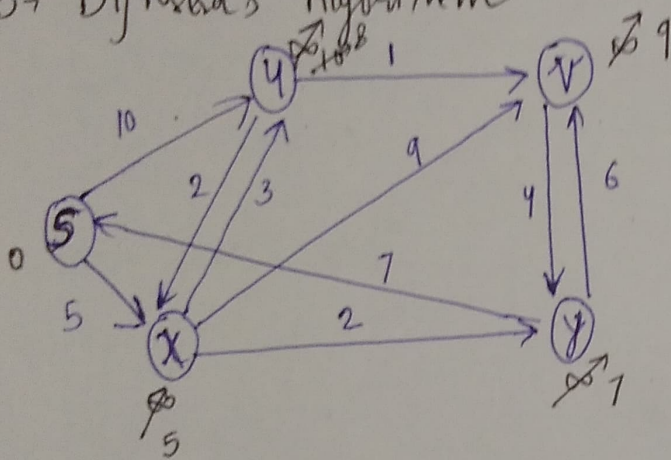 Dijkstra's Algorithm
∞ 10 8
u
1
v
∞ 9
10
2
3
9
4
6
S
0
7
5
x
2
y
∞
5
∞ 7